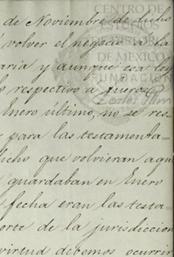 de Noviembre de dicho
volver el negocio a la
aria y aunque
respectivo a fuero
Enero último, no se res
para las testamenta-
dicho que volvieran aqu
guardaban en Enero
fecha eran las testa-
orte de la jurisdiccion
virtud debemos ocurrir
CENTRO DE
HISTORIA
DE MEXICO
FUNDACIÓN
Carlos Slim